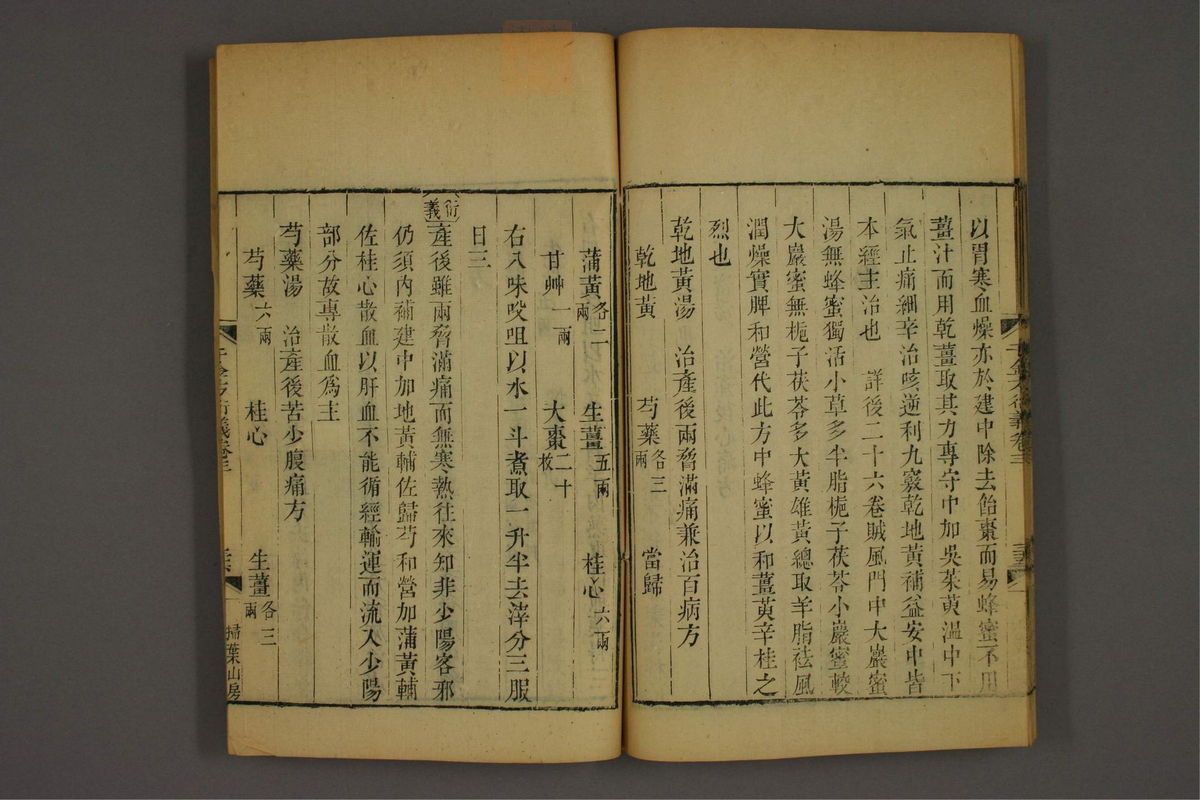 以胃寒血燥亦於建中除去飴棗而易蜂蜜不用
薑汁而用乾薑取其力專守中加吳茱萸溫中下
氣止痛細辛治咳逆利九竅乾地黃補益安中皆
本經主治也　詳後二十六卷賊風門中大巖蜜
湯無蜂蜜獨活小草多半脂梔子茯苓小巖蜜較
大巖蜜無梔子茯苓多大黃雄黃總取羊脂祛風
潤燥實脾和營代此方中蜂蜜以和薑萸辛桂之
烈也
乾地黃湯　治產後兩脅滿痛兼治百病方
乾地黃　芍藥各三兩　當歸
蒲黃各二兩　生薑五兩　桂心六兩
甘艸一兩　大棗二十枚
右八味㕮咀以水一斗煮取一升半去滓分三服
日三
衍義
產後雖兩脅滿痛而無寒熱往來知非少陽客邪
仍須內補建中加地黃輔佐歸芍和營加蒲黃輔
佐桂心散血以肝血不能循經輸運而流入少陽
部分故專散血為主
芍藥湯　治產後苦少腹痛方
芍藥六兩　桂心　生薑各三兩
千金方衍義卷三
掃葉山房